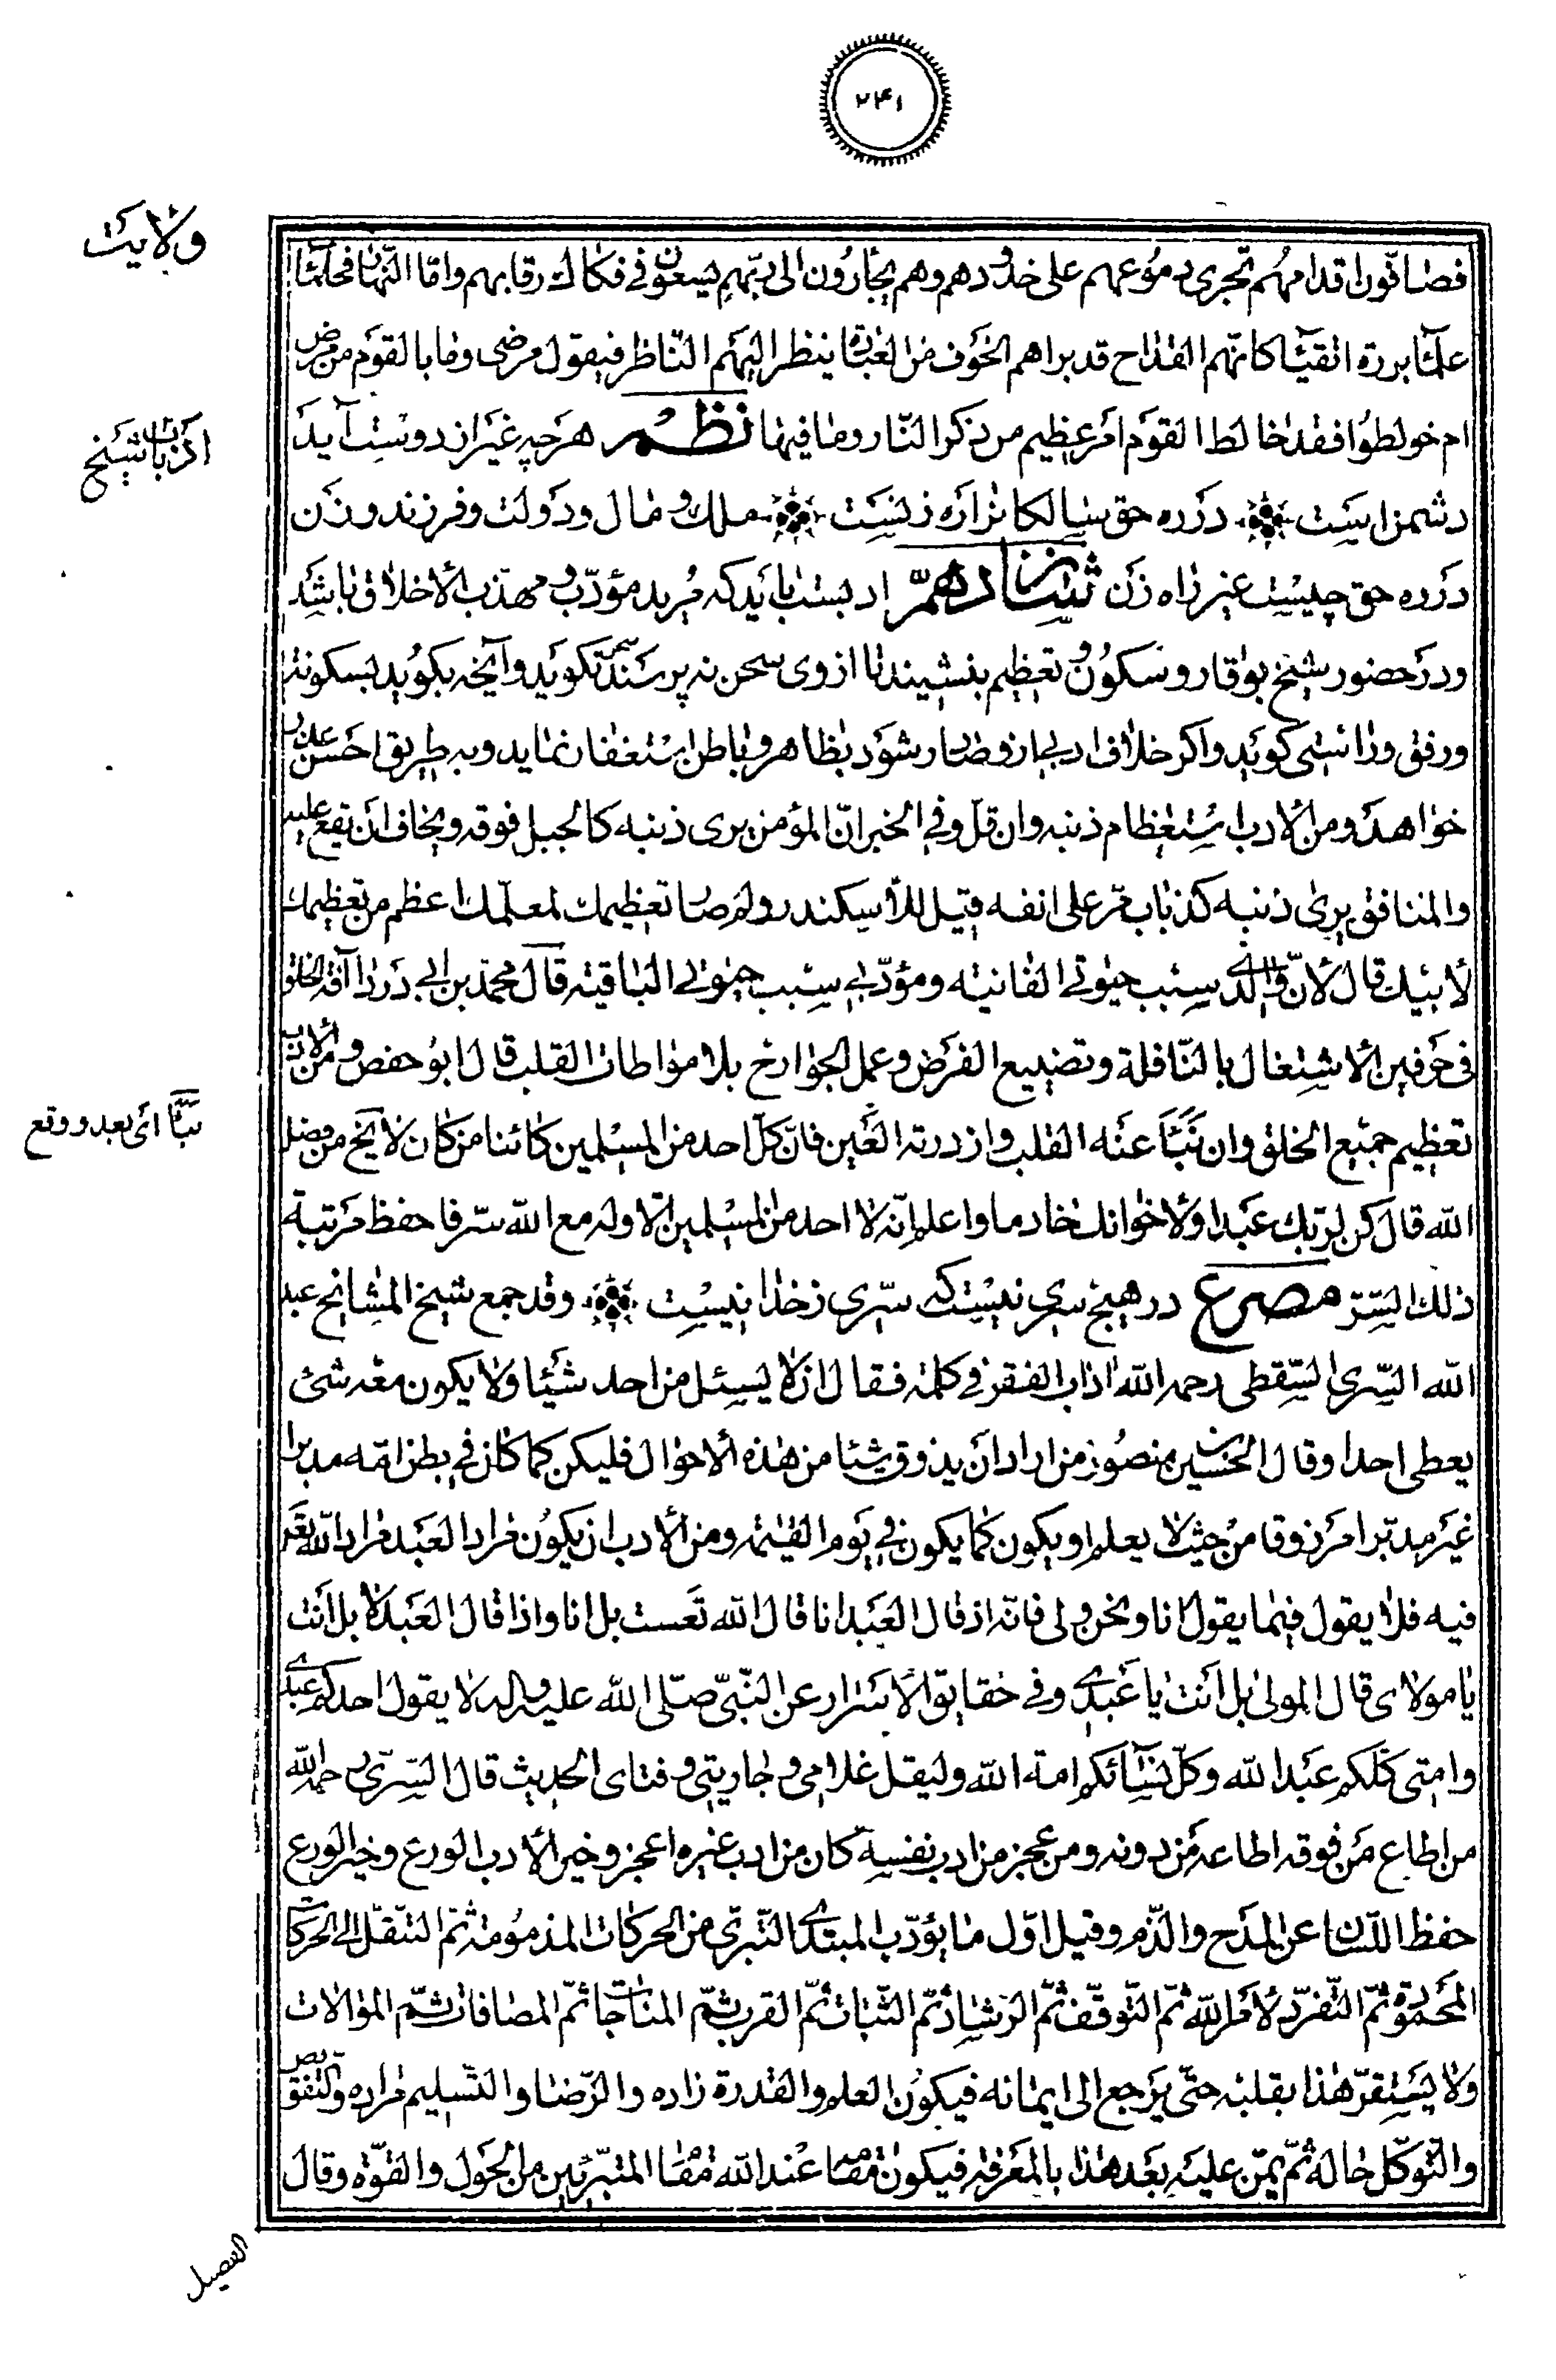 ۲۴۱
ولایت
فصافّون اقدامهم تجرى دموعهم على خدودهم وهم يجأرون الى ربّهم يسعون فى فكاك رقابهم وامّا النّهار فحلمآء
علمآء بررة اتقيآء كانّهم القداح قد براهم الخوف من العبادة ينظر اليهم النّاظر فيقول مرضى وما بالقوم من مرض
ام خولطوا فقد خالط القوم امر عظيم من ذكر النّار وما فيها نظم هرچه غیر از دوست آید
اداب با شیخ
دشمن است در ره حق سالکانرا ره زنست ملك و مال و دولت و فرزند و زن
در ره حق چیست غیر راه زن شانزدهمّ ادبست باید که مرید مؤدّب و مهذّب الاخلاق باشد
و در حضور شیخ بوقار و سکون و تعظیم بنشیند تا از وی سخن نه پرسند نگوید و آنچه بگوید بسکونت
و رفق و راستی گوید و اگر خلاف ادبی ازو صادر شود بظاهر و باطن استغفار نماید و به طریق احسن عذر
خواهد ومن الادب استعظام ذنبه وان قلّ وفى الخبر انّ المؤمن يرى ذنبه كالجبل فوقه ويخاف ان يقع عليه
والمنافق يرى ذنبه كذباب مرّ على انفه قيل للأسكندر ولم صار تعظيمك لمعلّمك اعظم من تعظيمك
لأبيك قال لأنّ والدى سبب حيوتى الفانيه ومؤدّبى سبب حيوتى الباقيته قال محمّد بن ابى درد آفة الخلق
فى حرفين الاشتغال بالنّافلة وتضييع الفرض وعمل الجوارح بلا مواطات القلب قال ابو حفص ومن الادب
تعظيم جميع الخلق وان نبّأ عنه القلب وازدرته العين فانّ كلّ احد من المسلمين كائنا من كان لا يخ من فضل
نبّأ اى بعد و وقع
الله قال كن لربّك عبدا ولاخوانك خادما واعلم انّه لا احد من المسلمين الّا وله مع الله سرّ فاحفظ مرتبة
ذلك السّرّ مصرع در هیچ سری نیست که سرّی ز خدا نیست وقد جمع شيخ المشايخ عبد
الله السّرى السّقطى رحمه الله اداب الفقر فى كلمة فقال ان لا يسئل من احد شيئا ولا يكون معه شئ
يعطى احدا وقال الحسين بن منصور من اراد ان يذوق شيئا من هذه الاحوال فليكن كما كان فى بطن امّه مدبرا
غير مدبّر امرزوقا من حيث لا يعلم او يكون كما يكون فى يوم القيمة ومن الادب ان يكون مراد العبد مراد الله تعالى
فيه فلا يقول فيما يقول انا ونحن ولى فانّه اذ قال العبد انا قال الله تعست بل انا واذا قال العبد لا بل انت
يا مولاى قال المولى بل انت يا عبدى وفى حقايق الاسرار عن النّبىّ صلّى الله عليه واله لا يقول احدكم عبدى
وامتى كلّكم عبد الله وكلّ نسآئكم امة الله وليقل غلامى وجاريتى وفتاى الحديث قال السّرّى رحمه الله
من اطاع من فوقه اطاعه من دونه ومن عجز من ادب نفسه كان من ادب غيره اعجز وخير الادب الورع وخير الورع
حفظ اللّسان عن المدح والذّم وقيل اوّل ما يؤدّب المبتدى التّبرّى من الحركات المذمومة ثمّ التنقّل الى الحركات
المحمودة ثمّ التّفرّد لأمر الله ثمّ التوقّف ثمّ الرشاد ثمّ الثّبات ثمّ القرب ثمّ المناجات ثمّ المصافات ثمّ الموالات
ولا يستقرّ هذا بقلبه حتّى يرجع الى ايمانه فيكون العلم والقدرة زاده والرّضا والتّسليم مراده والتّفويض
والتّوكّل حاله ثمّ يمنّ عليه بعد هذا بالمعرفة فيكون مقامه عند الله مقام المتبرّئين من الحول والقوّة وقال
الفصيل